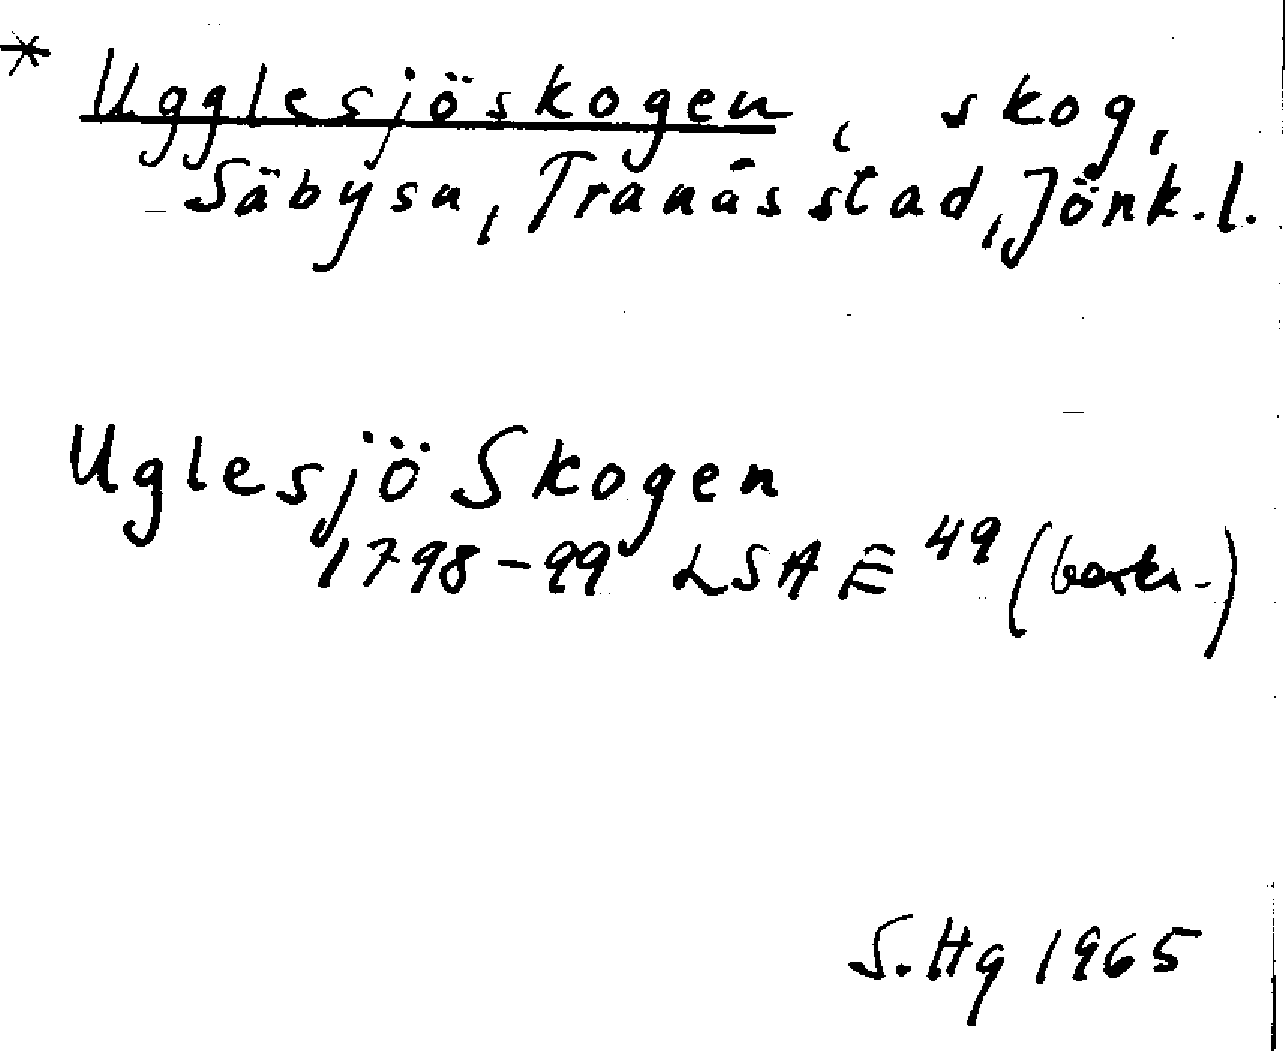 * Ugglesjöskogen, skog,
Säbysn, Tranås stad, Jönk.l.
Uglesjö Skogen
1798-99 LSA E 49 (beskr.)
S.Hg 1965